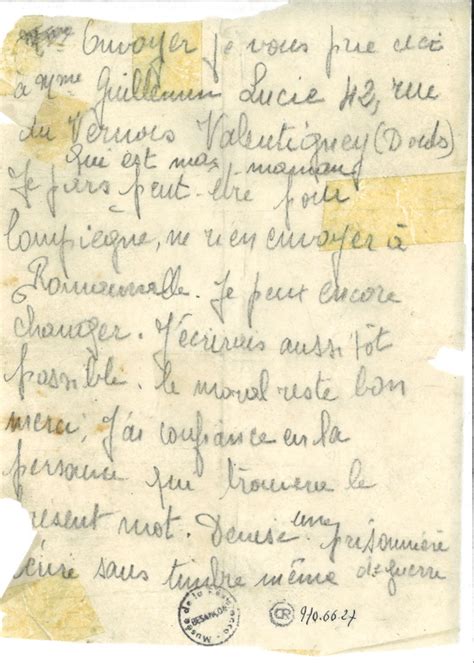 Envoyer je vous prie ceci
à Mme Guillemin Lucie 42, rue
du Vernois Valentigney (Doubs)
qui est ma maman
Je pars peut-être pour
Compiègne, ne rien envoyer à
Romainville. Je peux encore
changer. J'écrirais aussitôt
possible. le moral reste bon
merci, J'ai confiance en la
personne qui trouvera le
présent mot. Denise une prisonnière
écrire sans timbre même de guerre
Musée de la Résistance
BESANÇON
CR 970.66.27